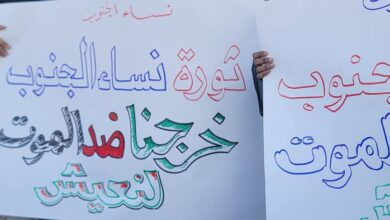 نساء الجنوب
ثورة نساء الجنوب
خرجنا ضد الموت
لنعيش
جنوب
الموت